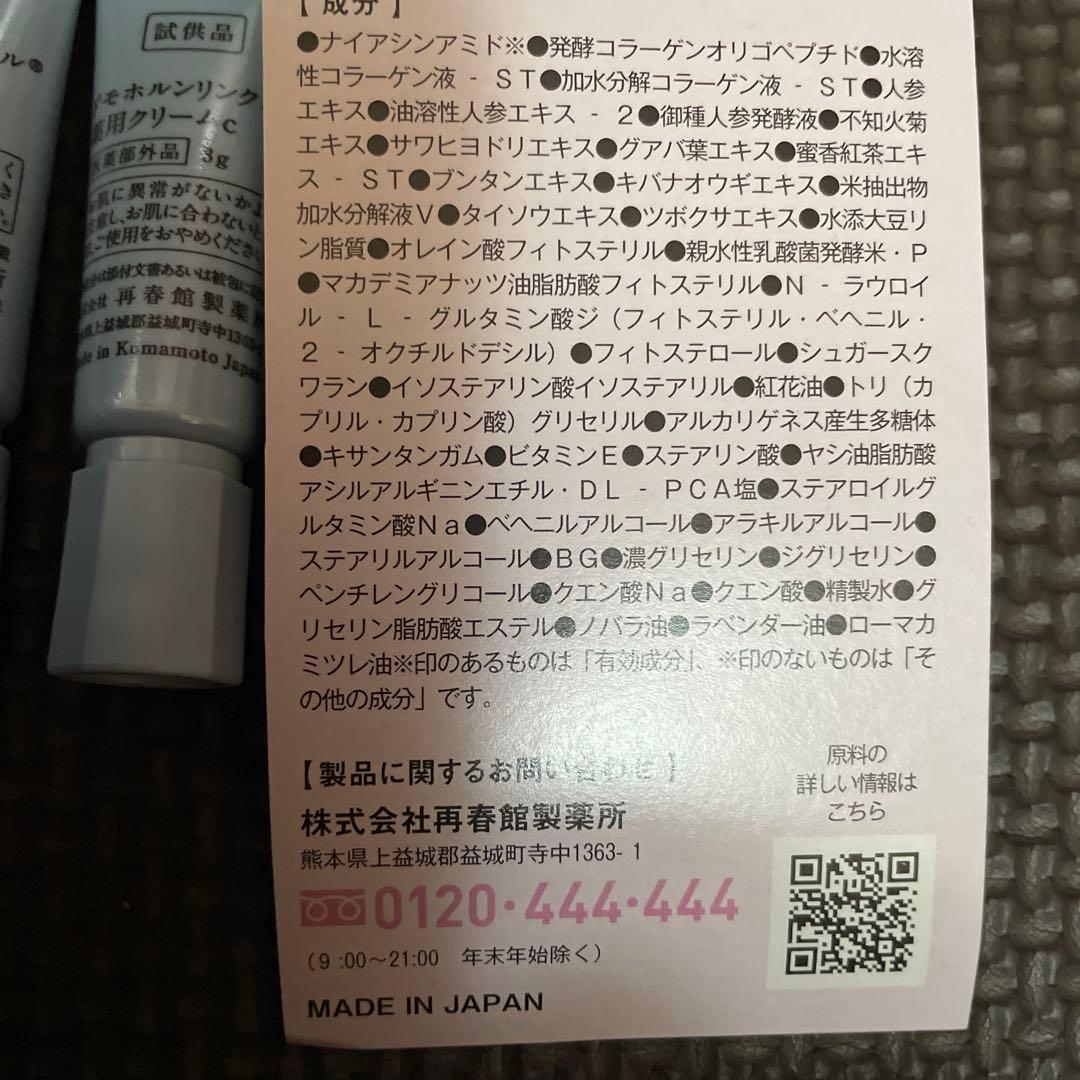 ル®
試供品
ホルンリンク
用クリームc
医薬部外品 3g
肌に異常がないかよ
し、お肌に合わないと
ご使用をおやめくださ
は添付文書あるいは被包に
再春館製薬所
県上益城郡益城町寺中1363-
in Kumamoto Japan
【成分】
●ナイアシンアミド※●発酵コラーゲンオリゴペプチド●水溶
性コラーゲン液‐ＳＴ●加水分解コラーゲン液‐ＳＴ●人参
エキス●油溶性人参エキス‐２●御種人参発酵液●不知火菊
エキス●サワヒヨドリエキス●グアバ葉エキス●蜜香紅茶エキ
ス‐ＳＴ●ブンタンエキス●キバナオウギエキス●米抽出物
加水分解液Ｖ●タイソウエキス●ツボクサエキス●水添大豆リ
ン脂質●オレイン酸フィトステリル●親水性乳酸菌発酵米・Ｐ
●マカデミアナッツ油脂肪酸フィトステリル●Ｎ‐ラウロイ
ル‐Ｌ‐グルタミン酸ジ（フィトステリル・ベヘニル・
２‐オクチルドデシル）●フィトステロール●シュガースク
ワラン●イソステアリン酸イソステアリル●紅花油●トリ（カ
プリル・カプリン酸）グリセリル●アルカリゲネス産生多糖体
●キサンタンガム●ビタミンＥ●ステアリン酸●ヤシ油脂肪酸
アシルアルギニンエチル・ＤＬ‐ＰＣＡ塩●ステアロイルグ
ルタミン酸Ｎａ●ベヘニルアルコール●アラキルアルコール●
ステアリルアルコール●ＢＧ●濃グリセリン●ジグリセリン●
ペンチレングリコール●クエン酸Ｎａ●クエン酸●精製水●グ
リセリン脂肪酸エステル●ノバラ油●ラベンダー油●ローマカ
ミツレ油※印のあるものは「有効成分」、※印のないものは「そ
の他の成分」です。
【製品に関するお問い合わせ】
株式会社再春館製薬所
熊本県上益城郡益城町寺中1363-1
0120・444・444
（9:00〜21:00 年末年始除く）
MADE IN JAPAN
原料の
詳しい情報は
こちら